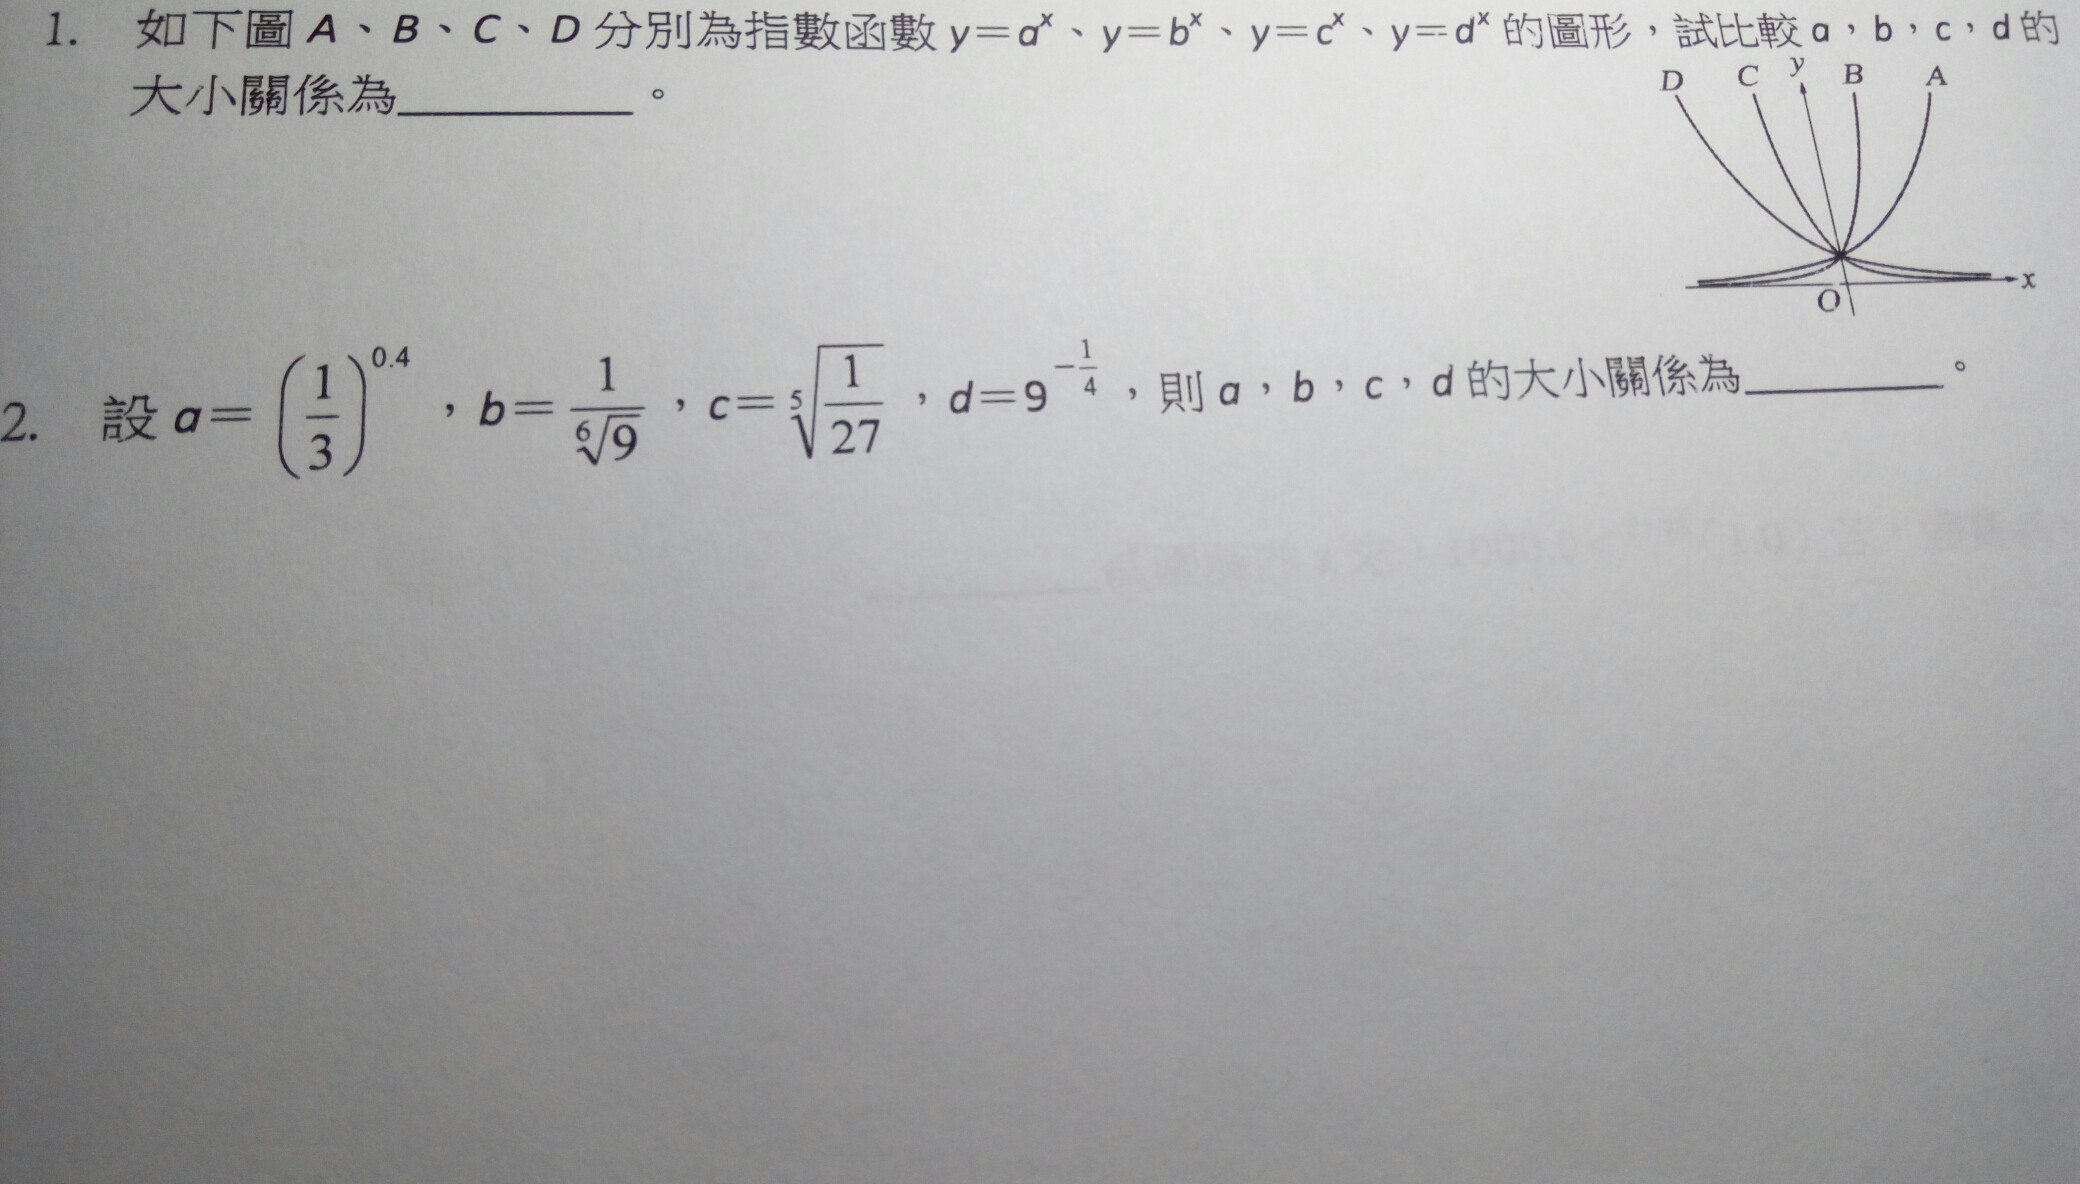 1. 如下圖 A、B、C、D 分別為指數函數 y=aˣ、y=bˣ、y=cˣ、y=dˣ 的圖形，試比較 a，b，c，d 的
大小關係為__________。
D C y B A
x
O
2. 設 a=(1/3)^0.4，b=1/⁶√9，c=⁵√(1/27)，d=9^(-1/4)，則 a，b，c，d 的大小關係為__________。